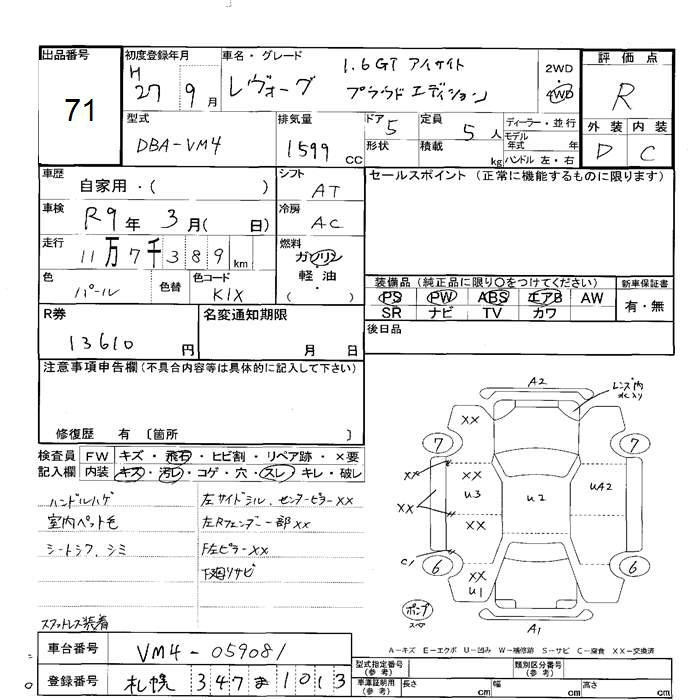 出品番号
71
初度登録年月
H 27 9 月
車名・グレード
レヴォーグ
1.6GT アイサイト
プラウドエディション
2WD
4WD
評価点
R
外装 内装
D C
型式
DBA-VM4
排気量
1599 CC
ドア 5
形状
定員 5 人
積載 kg
ディーラー・並行
モデル年式 年
ハンドル 左・右
車歴
自家用・( )
シフト AT
車検
R9年 3月( 日)
冷房 AC
走行
11万7千389 km
燃料
ガソリン
軽油
( )
色
パール
色替
色コード
K1X
セールスポイント (正常に機能するものに限ります)
装備品 (純正品に限り○をつけてください)
PS PW ABS エアB AW
SR ナビ TV カワ
新車保証書
有・無
後日品
R券
13610 円
名変通知期限
月 日
注意事項申告欄(不具合内容等は具体的に記入して下さい)
修復歴 有 〔箇所 〕
検査員記入欄
FW キズ・飛石・ヒビ割・リペア跡・×要
内装 キズ・汚レ・コゲ・穴・スレ・キレ・破レ
ハンドルハゲ
室内ペット毛
シートシワ、シミ
スタットレス装着
左サイドシル、センターピラーXX
左Rフェンダー一部XX
F左ピラーXX
下廻りサビ
A2
レンズ内
XX
7
7
XX
XX
U3
U2
UA2
XX
XX
C1
6
6
XX
U1
ポンプ
スペア
A1
A-キズ E-エクボ U-凹み W-補修跡 S-サビ C-腐食 XX-交換済
車台番号
VM4-059081
登録番号
札幌 347 ま 1013
型式指定番号
(参考)
類別区分番号
(参考)
車庫証明用
(参考)
長さ cm
幅 cm
高さ cm